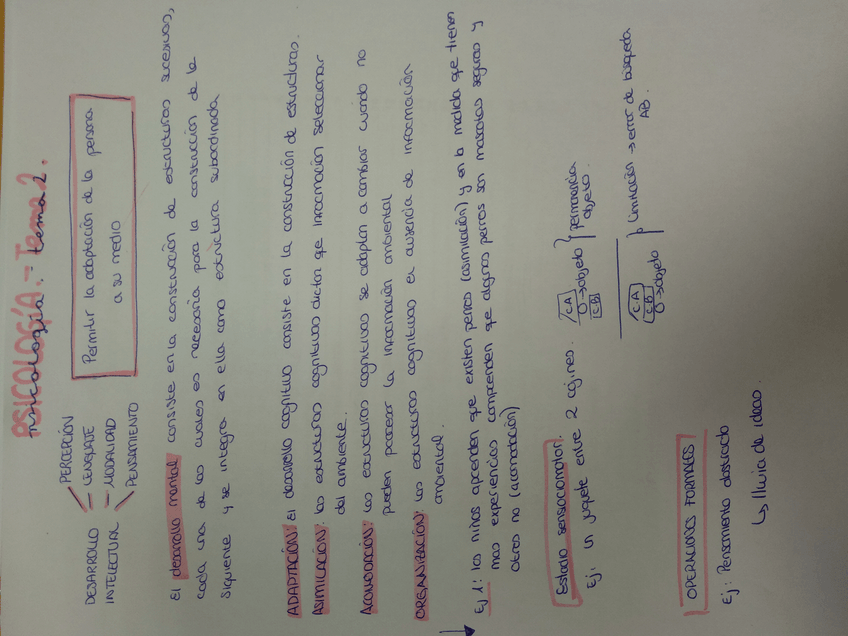 PSICOLOGÍA.- Tema 2.
psicología.- tema 2.
DESARROLLO INTELECTUAL
PERCEPCIÓN
LENGUAJE
MORALIDAD
PENSAMIENTO
Permitir la adaptación de la persona
a su medio
El desarrollo mental consiste en la construcción de estructuras sucesivas,
cada una de las cuales es necesaria para la construcción de la
siguiente y se integra en ella como estructura subordinada
ADAPTACIÓN: El desarrollo cognitivo consiste en la construcción de estructuras.
ASIMILACIÓN: las estructuras cognitivas dictan que información seleccionar
del ambiente.
ACOMODACIÓN: las estructuras cognitivas se adaptan a cambiar cuando no
pueden procesar la información ambiental
ORGANIZACIÓN: las estructuras cognitivas en ausencia de información
ambiental.
Ej 1: los niños aprenden que existen perros (asimilación) y en la medida que tienen
mas experiencias comprenden que algunos perros son mascotas seguras y
otros no (acomodación)
Estadio sensoriomotor.
Ej: Un juguete entre 2 cojines.
C.A
O→objeto
C.B
permanencia
objeto.
C.A
C.B
O→objeto
limitación → error de búsqueda
AB.
OPERACIONES FORMALES
Ej: Pensamiento abstracto
↳ lluvia de ideas.